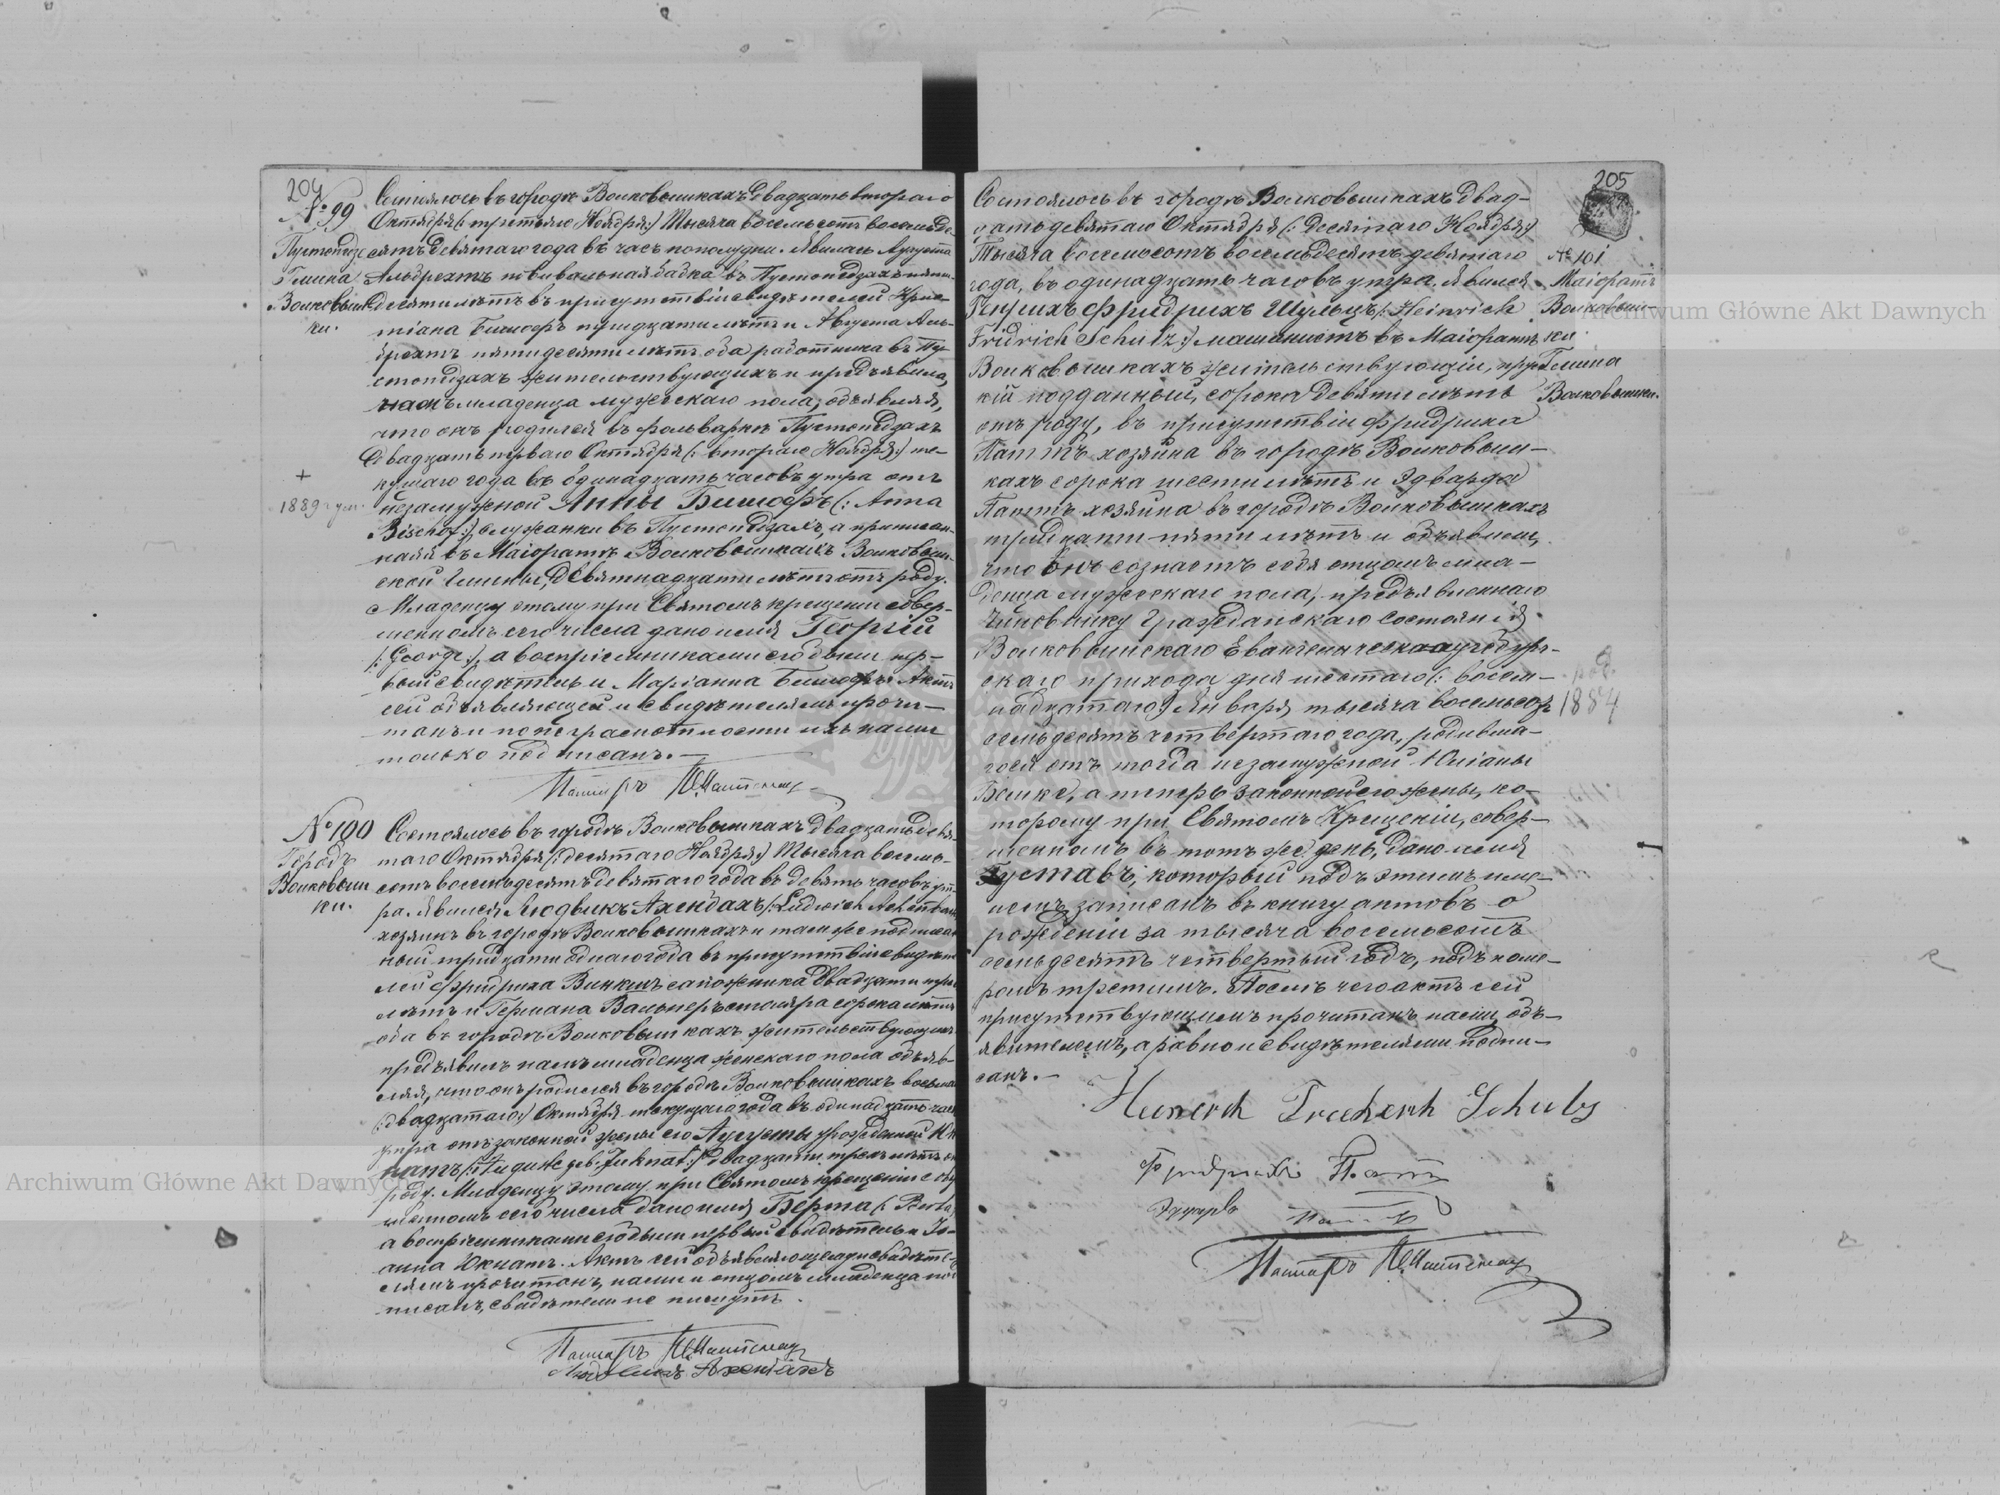 204
№ 99
Пустопедзе
Гмина
Волковышки.
+
1889 г.
Состоялось въ городѣ Волковышкахъ двадцать втораго
Октября (: третьяго Ноября :) тысяча восемьсотъ восемьде
сятъ девятаго года въ часъ пополудни. Явилась Августа
Альбрехтъ повивальная бабка въ Пустопедзахъ пяти-
десяти лѣтъ въ присутствіи свидѣтелей Крис-
тіана Бишофъ тридцати лѣтъ и Августа Аль-
брехтъ пятидесяти лѣтъ оба работника въ Пу-
стопедзахъ жительствующихъ и предъявила
намъ младенца мужескаго пола, объявляя,
что онъ родился въ фольваркѣ Пустопедзахъ
двадцать перваго Октября (: втораго Ноября :) те-
кущаго года въ одинадцать часовъ утра отъ
незамужной Анны Бишофъ (: Anna
Bischof :), служанки въ Пустопедзахъ, а приписан-
ная въ Маіоратъ Волковышкахъ Волковыш-
ской Гмины, девятнадцати лѣтъ отъ роду.
Младенцу этому при Святомъ крещеніи совер-
шенномъ сего числа дано имя Георгій
(: George :), а воспріемниками его были пер-
вый свидѣтель и Маріанна Бишофъ. Актъ
сей объявляющей и свидѣтелямъ прочи-
танъ и по неграмотности ихъ нами
только подписанъ. —
Пасторъ
№ 100
Городъ
Волковыш
ки.
Состоялось въ городѣ Волковышкахъ двадцать девя-
таго Октября (: десятаго Ноября :) тысяча восемь-
сотъ восемьдесятъ девятаго года въ девять часовъ ут-
ра. Явился Людвикъ Ахенбахъ (: Ludwich Achenbach
хозяинъ въ городѣ Волковышкахъ и тамже
тридцати одного года въ присутствіи свидѣте
лей Фридриха Винкшъ сапожника двадцати три
лѣтъ и Германа Вальнеръ столяра сорока лѣтъ
оба въ городѣ Волковышкахъ жительствующихъ
предъявилъ намъ младенца женскаго пола объяв-
ляя, что онъ родился въ городѣ Волковышкахъ восьмаго
(: двадцатаго :) Октября текущаго года въ одинадцать час
утра отъ законной жены его Августы урожденной Юк
натъ (: geb. Juknat :) двадцати трехъ лѣтъ отъ
роду. Младенцу этому при Святомъ крещеніи совер
шенномъ сего числа дано имя Берта (: Berta
а воспріемниками его были первый свидѣтель и Іо-
анна Юкнатъ. Актъ сей объявляющему и свидѣте-
лямъ прочитанъ, нами и отцомъ младенца под
писанъ, свидѣтели не пишутъ.
Пасторъ
Людвикъ Ахенбахъ
205
№ 101
Маіоратъ
Волковыш-
ки
Гмина
Волковышки.
1884
Состоялось въ городѣ Волковышкахъ двад-
цать девятаго Октября (: Десятаго Ноября :)
Тысяча восемьсотъ восемьдесятъ девятаго
года, въ одинадцать часовъ утра. Явился
Генрихъ Фридрихъ Шульцъ (: Heinrich
Fridrich Schulz :) машинистъ въ Маіоратѣ
Волковышкахъ жительствующій, прус-
кій подданный, сорока девяти лѣтъ
отъ роду, въ присутствіи Фридриха
Паттъ хозяина въ городѣ Волковыш-
кахъ сорока шести лѣтъ и Эдварда
Паттъ хозяина въ городѣ Волковышкахъ
тридцати пяти лѣтъ и объявилъ,
что Онъ сознаетъ себя отцомъ мла-
денца мужескаго пола, предъявленнаго
Чиновнику Гражданскаго Состоянія
Волковышскаго Евангелическо аугсбург-
скаго прихода дня шестаго (: восем-
надцатаго :) Января тысяча восемьсотъ
осемьдесятъ четвертаго года, родивша-
гося отъ тогда незамужной Юліаны
Бемке, а теперь законной его жены, ко-
торому при Святомъ Крещеніи, совер-
шенномъ въ тотъ же день, дано имя
Густавъ, который подъ этимъ име-
немъ записанъ въ книгу актовъ о
рожденіи за тысяча восемьсотъ
осемьдесятъ четвертый годъ, подъ номе-
ромъ третьимъ. Послѣ чего актъ сей
присутствующимъ прочитанъ нами, объ-
явителемъ, а равно и свидѣтелями подпи-
санъ. —
Фридрихъ Патъ
Эдуардъ
Пасторъ
Archiwum Główne Akt Dawnych
Archiwum Główne Akt Dawnych